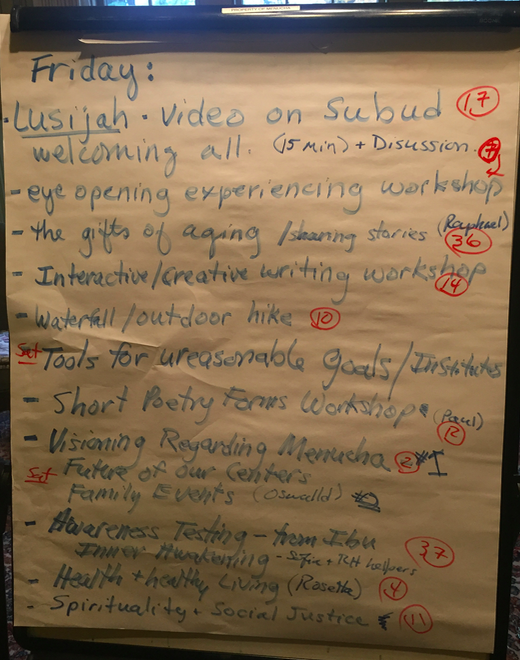 PROPERTY OF MENUCHA
Friday:
· Lusijah · Video on Subud 17
welcoming all. (15 min) + Disussion.
- eye opening experiencing workshop 2
- the gifts of aging / sharing stories (Raphael) 36
- Interactive/creative writing workshop 14
- Waterfall / outdoor hike 10
Sat Tools for ureasonable Goals / Institutes
- Short Poetry Forms Workshop (Paul) 12
- Visioning Regarding Menucha 2 #1
Sat Future of our Centers
Family Events (Oswalld)
- Awareness Testing - from Ibu 37
Inner Awakening - + helpers
- Health + healthy Living (Rosetta) 4
- Spirituality + Social Justice 11